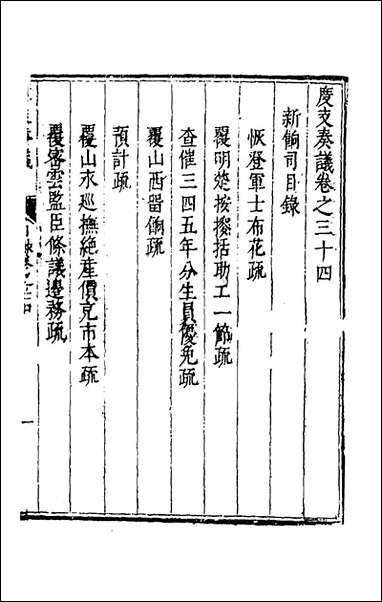 度支奏議卷之三十四
新餉司目錄
恢登軍士布花疏
覆明楚按搜括助工一節疏
查催三四五年分生員優免疏
覆山西畱餉疏
預計疏
覆山永巡撫絶産價克市本疏
覆密雲監臣條議邊務疏
一